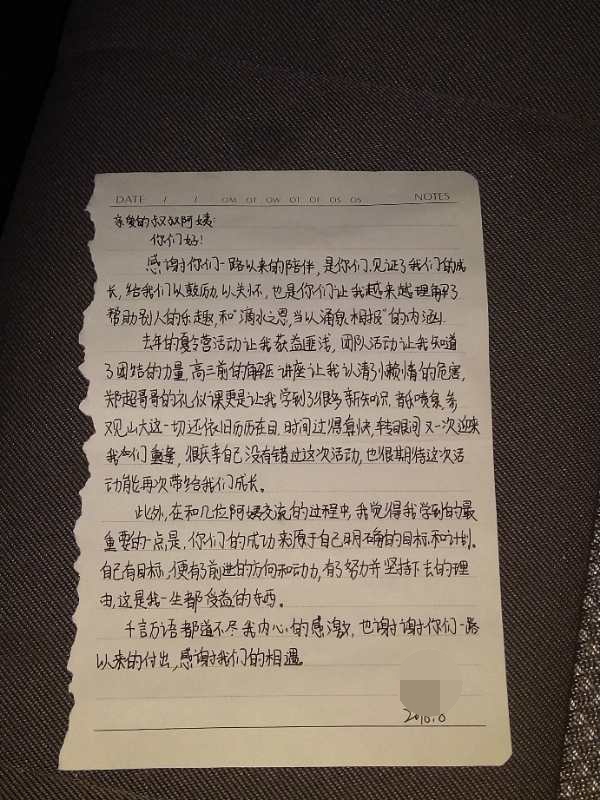 DATE / / OM OT OW OT OF OS OS NOTES
亲爱的叔叔阿姨:
你们好!
感谢你们一路以来的陪伴,是你们见证了我们的成
长,给我们以鼓励,以关怀,也是你们让我越来越理解了
帮助别人的乐趣,和"滴水之恩,当以涌泉相报"的内涵。
去年的夏令营活动让我获益匪浅,团队活动让我知道
了团结的力量,高三前的解压讲座让我认清了懒惰的危害,
郑超哥哥的礼仪课更是让我学到了很多新知识,音乐喷泉,参
观山大这一切还依旧历历在目,时间过得真快,转眼间又一次迎来
我们重聚,很庆幸自己没有错过这次活动,也很期待这次活
动能再次带给我们成长。
此外,在和几位阿姨交流的过程中,我觉得我学到的最
重要的一点是,你们的成功来源于自己明确的目标和计划。
自己有目标,便有了前进的方向和动力,有了努力并坚持下去的理
由,这是我一生都受益的东西。
千言万语都道不尽我内心的感激,也谢谢你们一路
以来的付出,感谢我们的相遇。